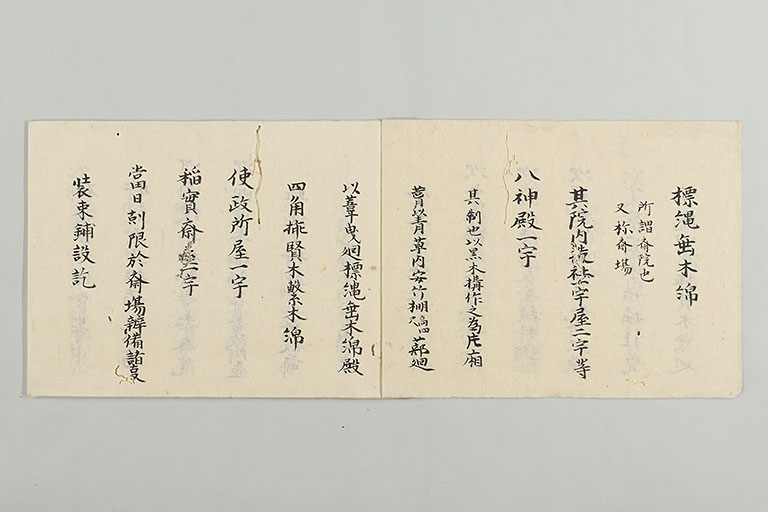 標縄垂木綿
所謂斎院也
又称斎場
其院内造社一宇屋二宇等
八神殿一宇
其制也以黒木構作之為庇廂
葺以青草内安竹棚高四尺蔀廻
以葦曳廻標縄垂木綿殿
四角挿賢木繋木綿
使政所屋一宇
稲實斎屋一宇
当日剋限於斎場辨備諸事
装束鋪設訖